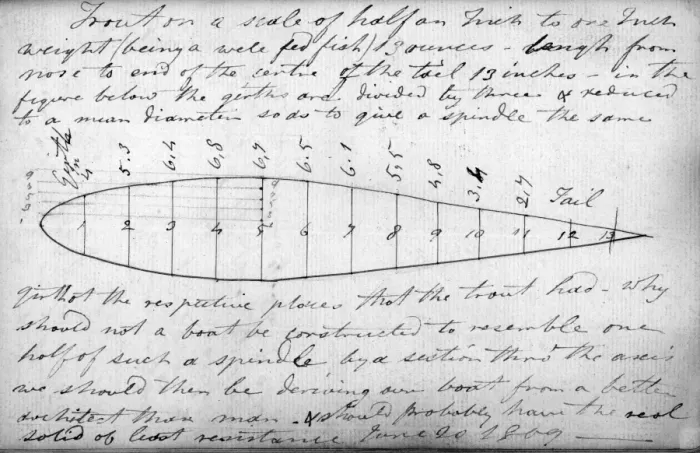 Trout on a scale of half an Inch to one Inch
weight (being a well fed fish) 13 ounces - length from
nose to end of the centre of the tail 13 inches - in the
figure below the girths are divided by three & reduced
to a mean diameter so as to give a spindle the same
Girths in 4 5.3 6,4 6,8 6,7 6.5 6.1 5,5 4,8 3,4 2,7 Tail
1 2 3 4 5 6 7 8 9 10 11 12 13
girth at the respective places that the trout had - why
should not a boat be constructed to resemble one
half of such a spindle by a section thro' the axis
we should then be deriving our boat from a better
architect than man - & should probably have the real
solid of least resistance June 20 1809